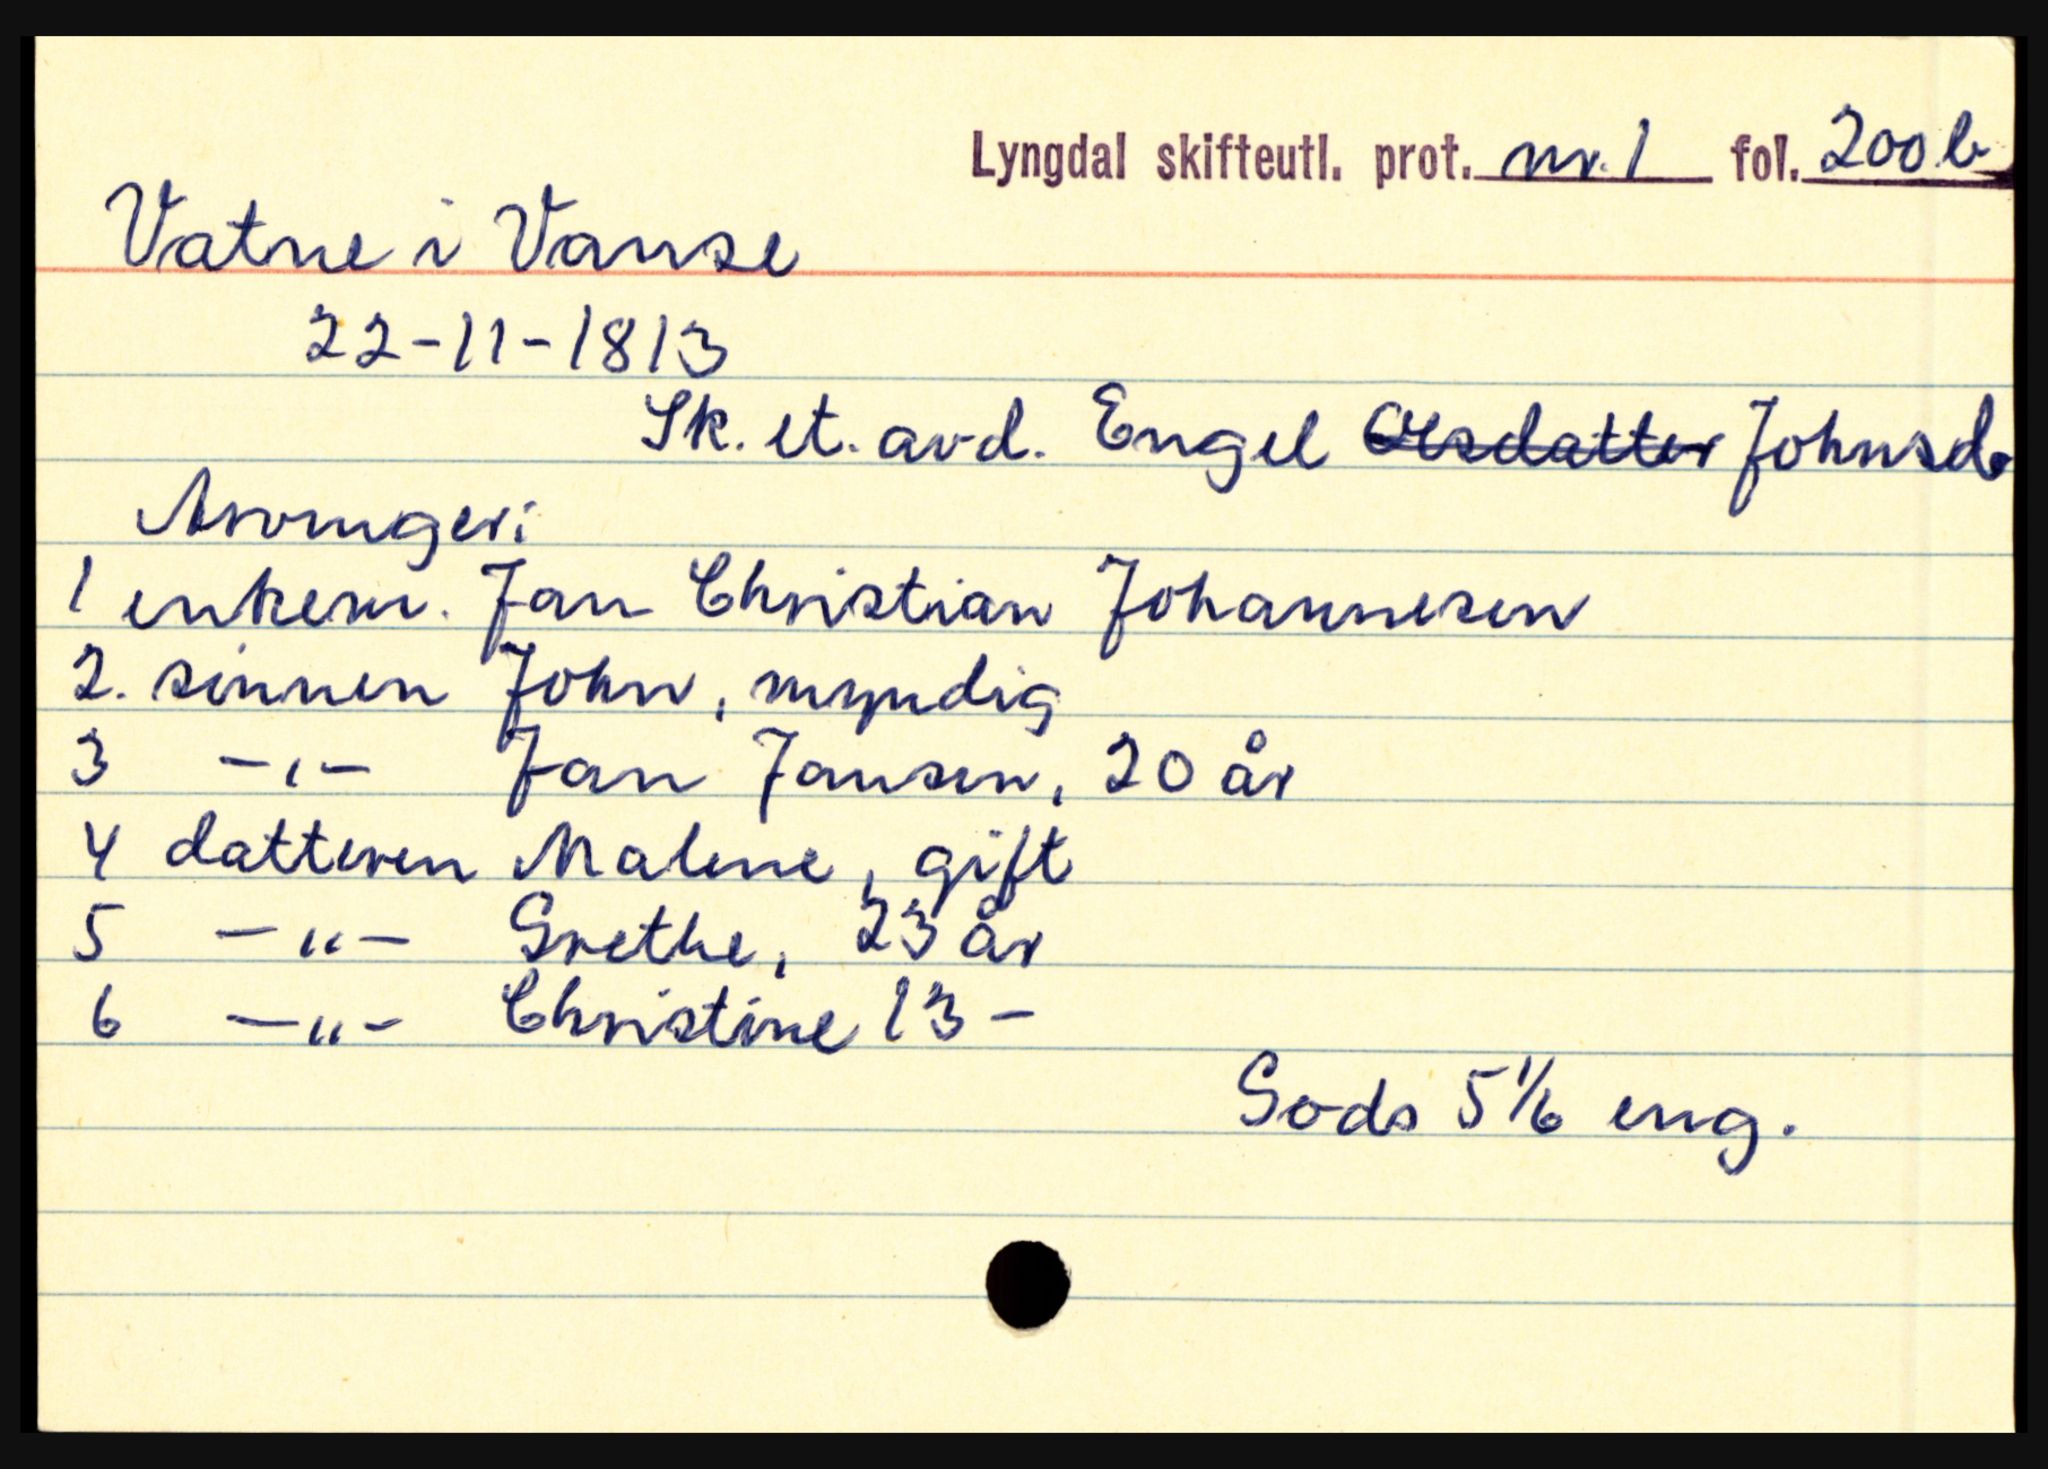 Lyngdal skifteutl. prot. nr. 1 fol. 200 b
Vatne i Vanse
22-11-1813
Sk. et. avd. Engel Olsdatter Johnsd.
Arvinger:
1 enkem. Jan Christian Johannesen
2. sønnen John, myndig
3 -"- Jan Jansen, 20 år
4 datteren Malene, gift
5 -"- Grethe, 23 år
6 -"- Christine 13 -
Gods 5 1/6 eng.